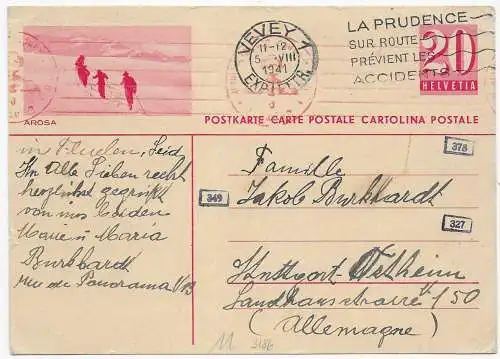 VEVEY 1
11-12
5. VIII
1941
LA PRUDENCE
SUR ROUTE
PRÉVIENT LES
ACCIDENTS
20
HELVETIA
AROSA
POSTKARTE CARTE POSTALE CARTOLINA POSTALE
in Seid
Ihr Alle Lieben recht
herzlichst gegrüsst
von uns beiden
Marie u Maria
Burkhardt
rue du Panorama
Familie
Jakob Burkhardt
378
349
327
Stuttgart
Landhausstrasse 150
(Allemagne)
11
3186